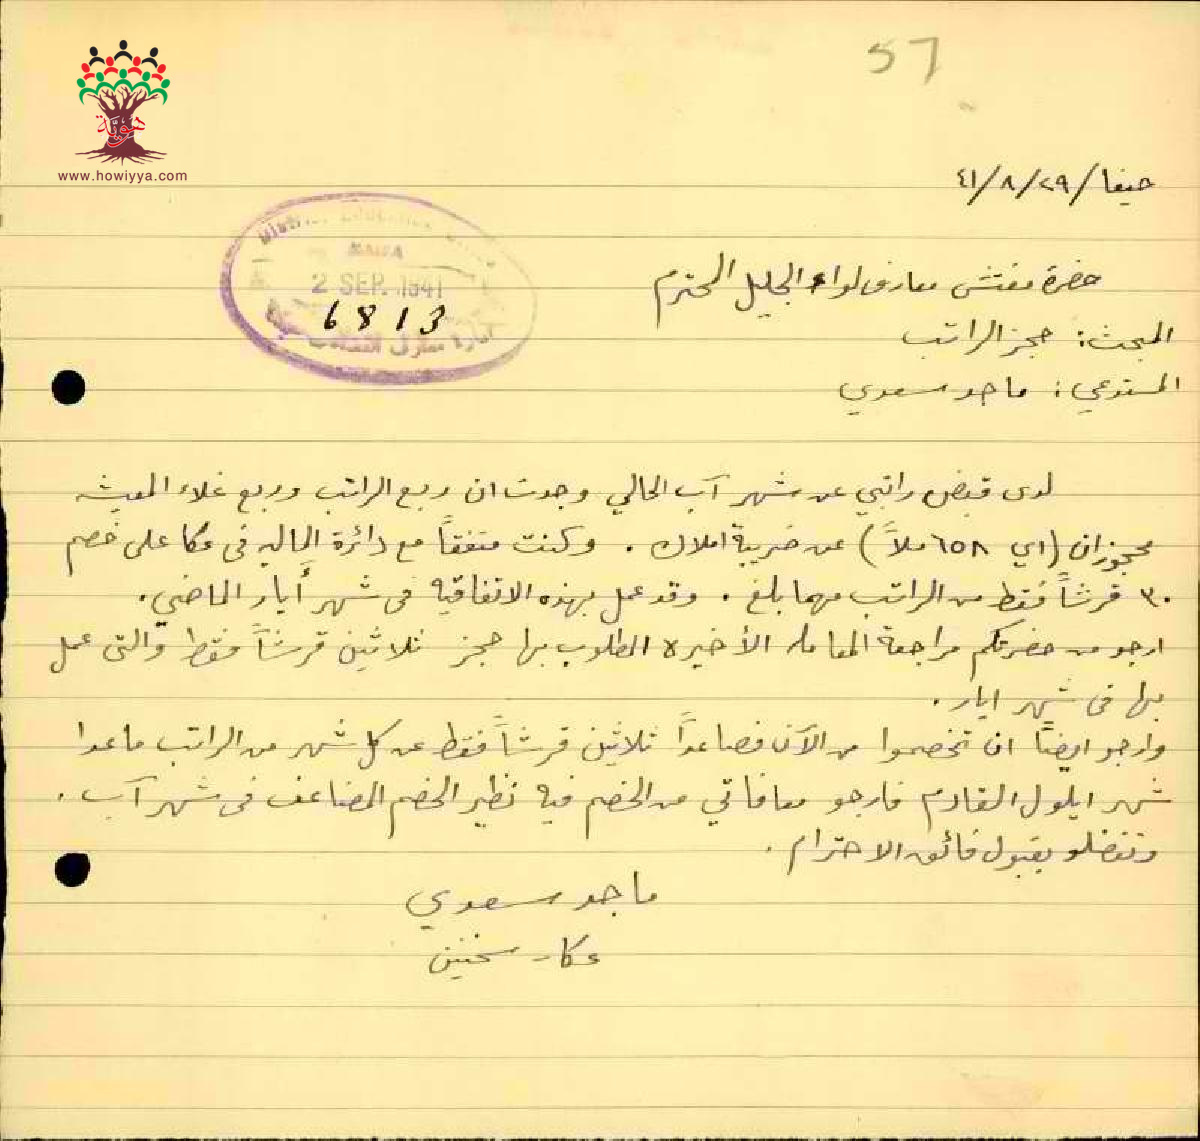 57
هوية
www.howiyya.com
حيفا/٢٩/٨/٤١
HAIFA
2 SEP. 1941
6813
حضرة مفتش معارف لواء الجليل المحترم
المبحث: حجز الراتب
المستدعي: ماجد سعدي
لدى قبض راتبي عن شهر آب الحالي وجدت ان ربع الراتب وربع غلاء المعيشه
محجوزان (اي ٦٥٨ ملاً) عن ضريبة املاك. وكنت متفقاً مع دائرة الماليه في عكا على خصم
٣٠ قرشاً فقط من الراتب مهما بلغ. وقد عمل بهذه الاتفاقيه في شهر أيار الماضي.
ارجو من حضرتكم مراجعة المعامله الأخيره المطلوب بها حجز ثلاثين قرشاً فقط والتي عمل
بها في شهر ايار.
وارجو ايضاً ان تخصموا من الآن فصاعداً ثلاثين قرشاً فقط عن كل شهر من الراتب ماعدا
شهر ايلول القادم فارجو معافاتي من الخصم فيه نظير الخصم المضاعف في شهر آب.
وتفضلو بقبول فائق الاحترام.
ماجد سعدي
عكا - سخنين